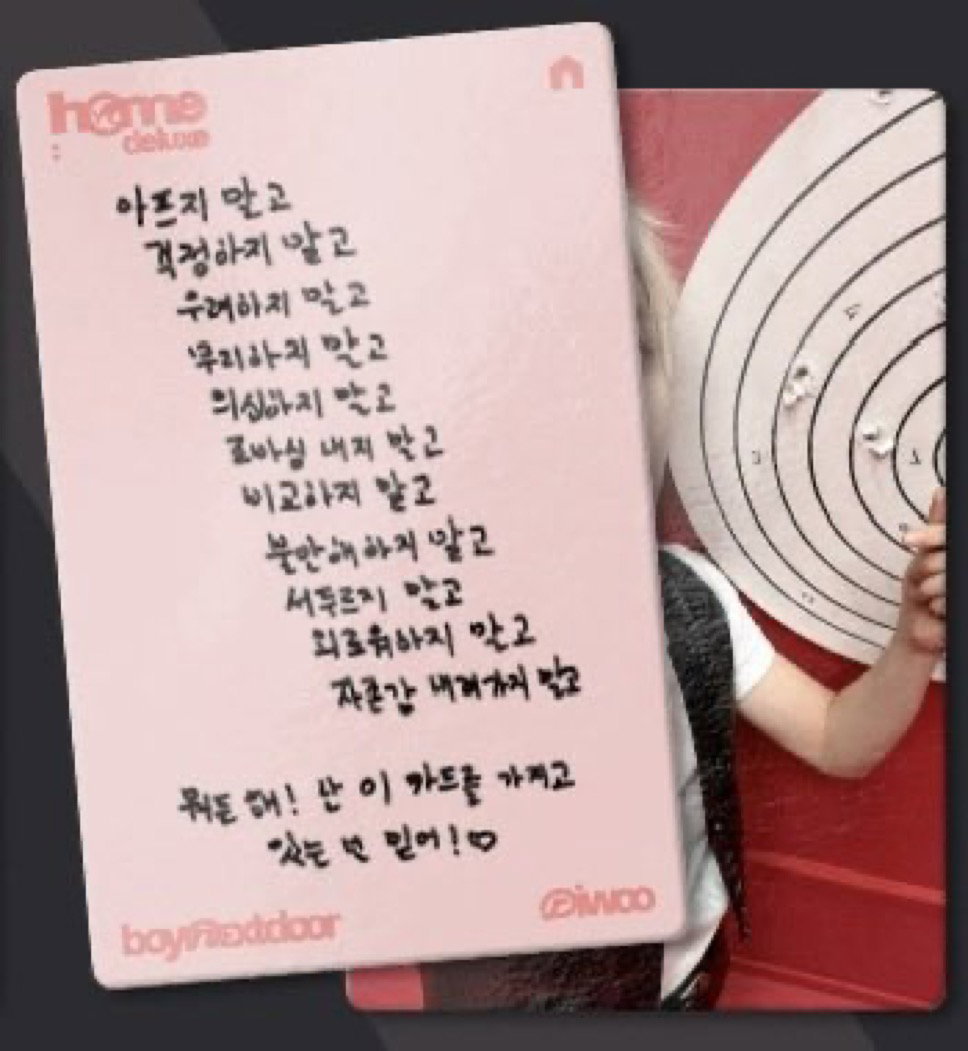 home
deluxe
:
아프지 말고
걱정하지 말고
우려하지 말고
무리하지 말고
의심하지 말고
조바심 내지 말고
비교하지 말고
불안해하지 말고
서두르지 말고
외로워하지 말고
자존감 내려가지 말고
뭐든 해! 난 이 카드를 가지고
있는 넌 믿어!♡
boynextdoor
@iwoo